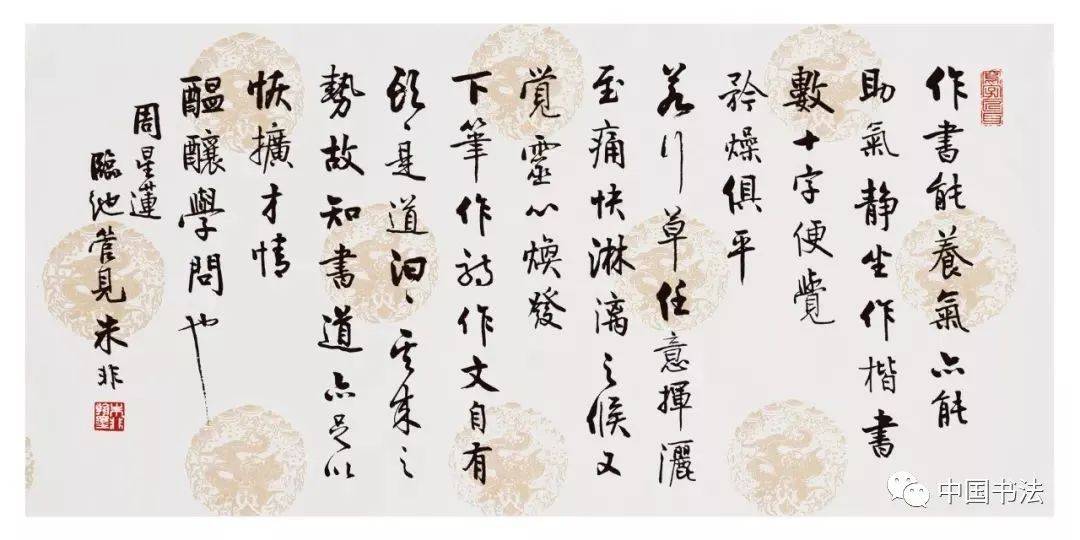 作書能養氣亦能
助氣静坐作楷書
數十字便覺
矜燥俱平
若行草任意揮灑
至痛快淋漓之候又
覚靈心焕發
下筆作詩作文自有
頭〻是道汩〻其來之
勢故知書道亦足以
恢擴才情
醖釀學問也
周星蓮
臨池管見 朱非
中国书法